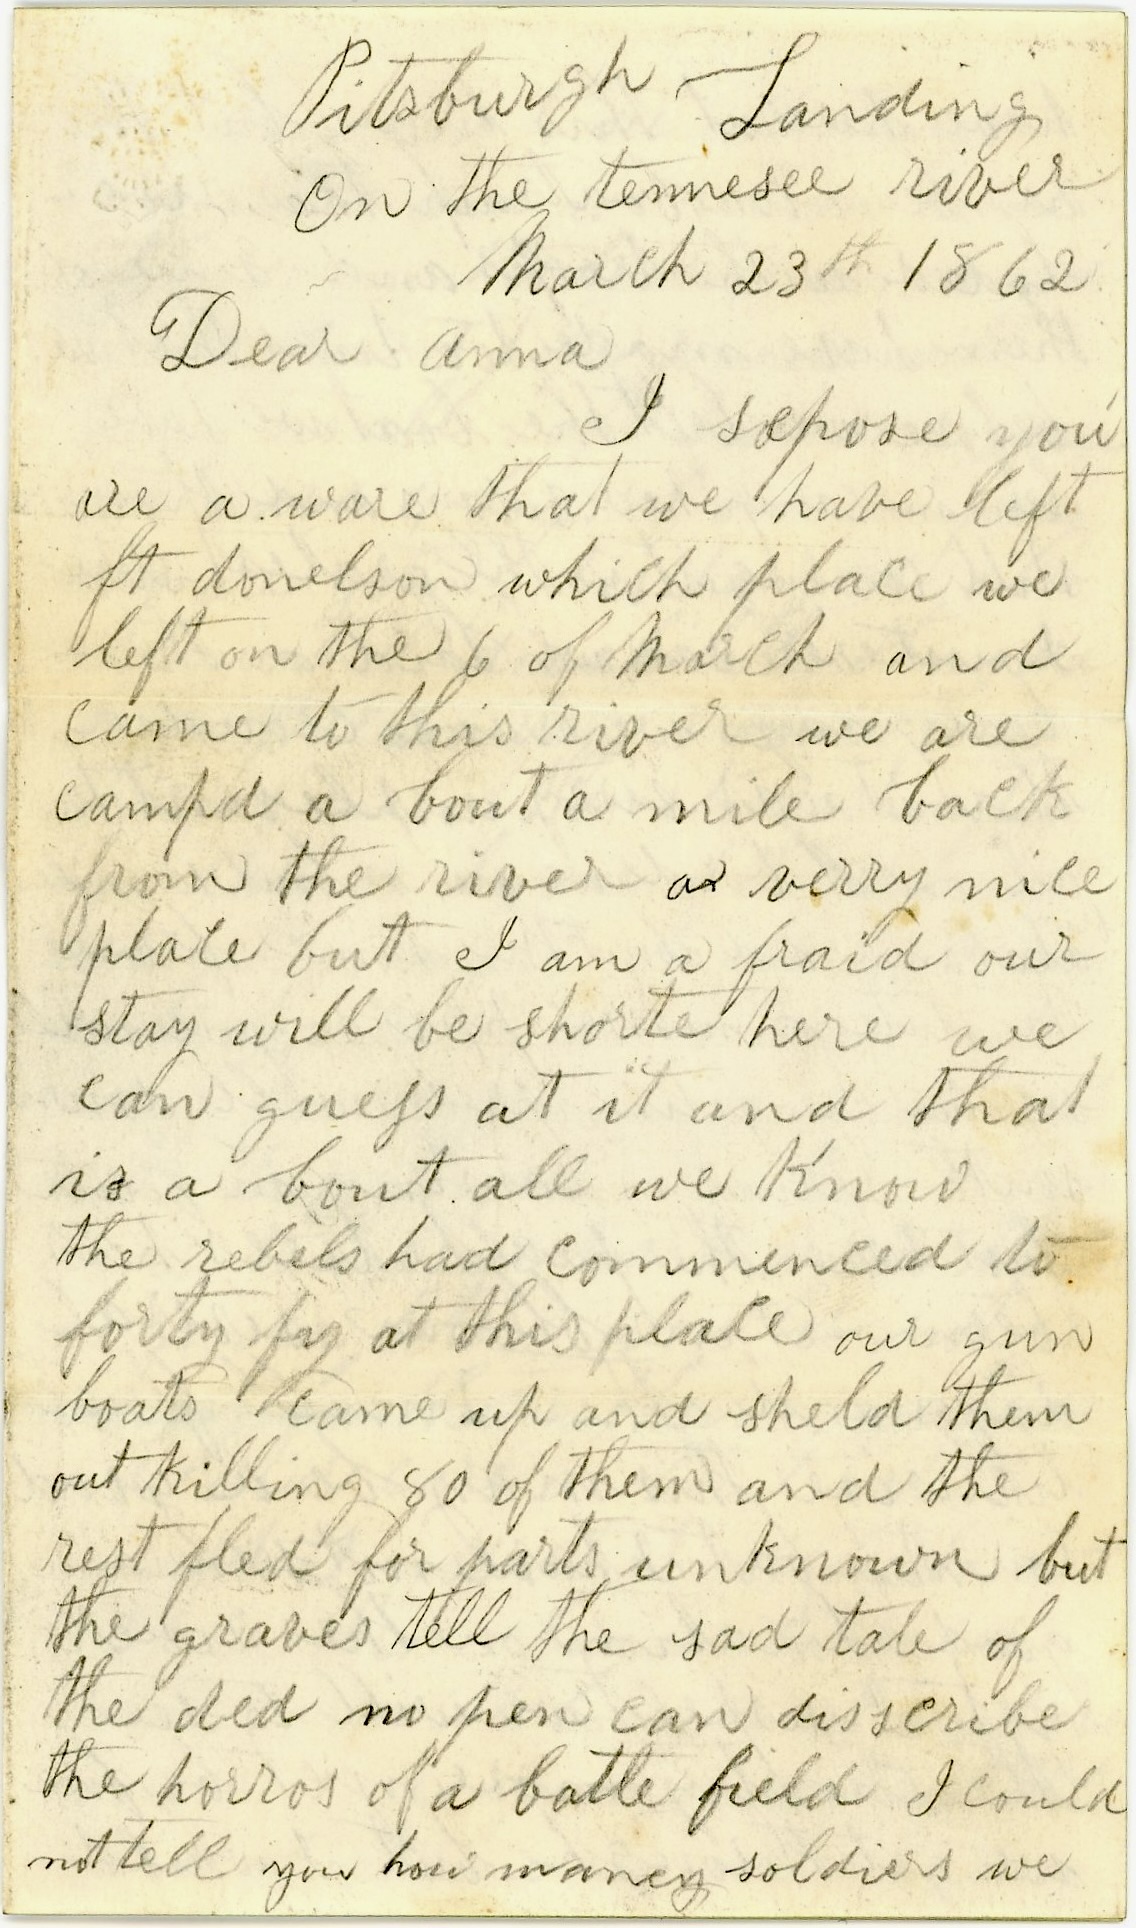 Pitsburgh Landing
On the tennesee river
March 23th 1862
Dear anna
I sepose you
are a ware that we have left
ft donelson which place we
left on the 6 of March and
came to this river we are
campd a bout a mile back
from the river a verry nice
place but I am a fraid our
stay will be shorte here we
can guess at it and that
is a bout all we know
the rebels had commenced to
forty fy at this place our gun
boats came up and sheld them
out killing 80 of them and the
rest fled for parts unknown but
the graves tell the sad tale of
the ded no pen can disscribe
the horros of a batle field I could
not tell you how maney soldiers we